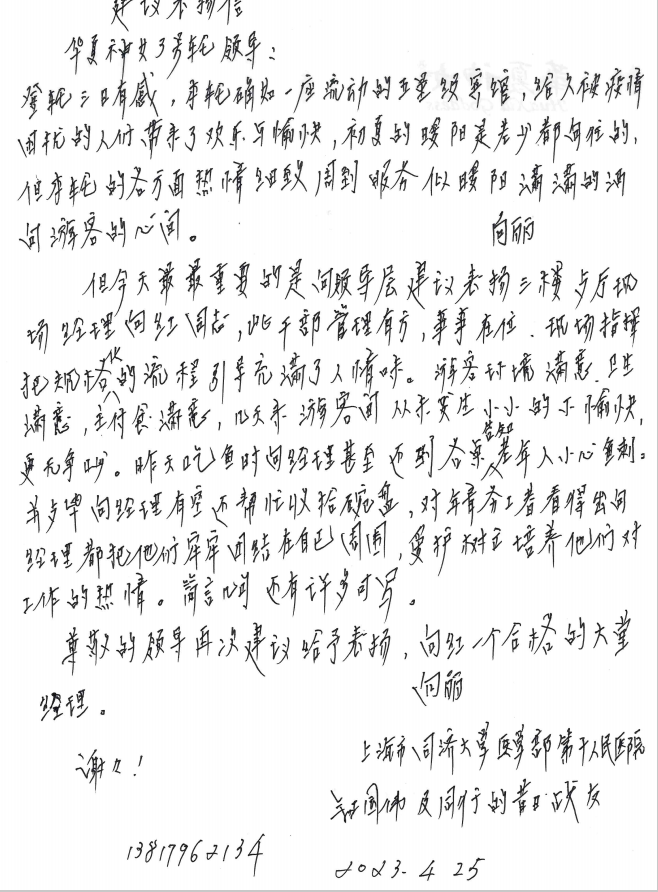 建议表扬信
华夏神女3号轮领导:
登轮三日有感,本轮确如一座流动的五星级宾馆,给久被疫情
困扰的人们带来了欢乐与愉快,初夏的暖阳是老少都向往的,
但本轮的各方面热情细致周到服务似暖阳满满的洒
向游客的心间。
向丽
但今天最最重要的是向领导层建议表扬三楼歺厅现
场经理向红同志,此干部管理有方,事事在位、现场指挥
把规格化的流程引导充满了人情味。游客环境满意、卫生
满意,主付食满意,几天来游客间从未发生小小的不愉快,
更无争吵。昨天吃鱼时向经理甚至还到各桌告知老年人小心鱼刺。
歺毕向经理有空还帮忙收拾碗盘,对年青务工者看得出向
经理都把他们牢牢团结在自己周围,爱护树立培养他们对
工作的热情。简言几句还有许多可写。
尊敬的领导再次建议给予表扬,向红一个合格的大堂
向丽
经理。
谢々!
上海市同济大学医学部第十人民医院
国伟及同行的昔日战友
13817962134
2023.4 25